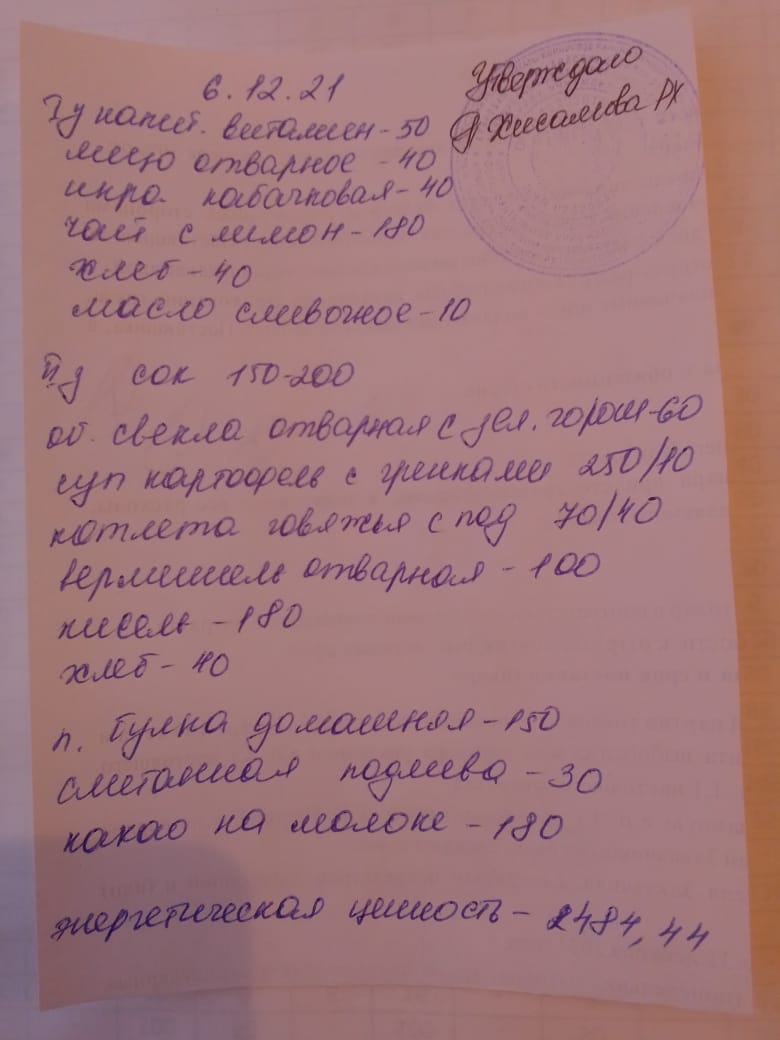 6.12.21
Утверждаю
Хисамова РХ
Iз напит. витамин-50
яйцо отварное - 40
икра кабачковая-40
чай с лимон-180
хлеб-40
масло сливочное-10
IIз сок 150-200
об. свекла отварная с зел. горош-60
суп картофель с гренками 250/10
котлета говяжья с под 70/40
вермишель отварная - 100
кисель - 180
хлеб- 40
п. булка домашняя-150
сметанная подлива - 30
какао на молоке - 180
энергетическая ценность - 2484,44